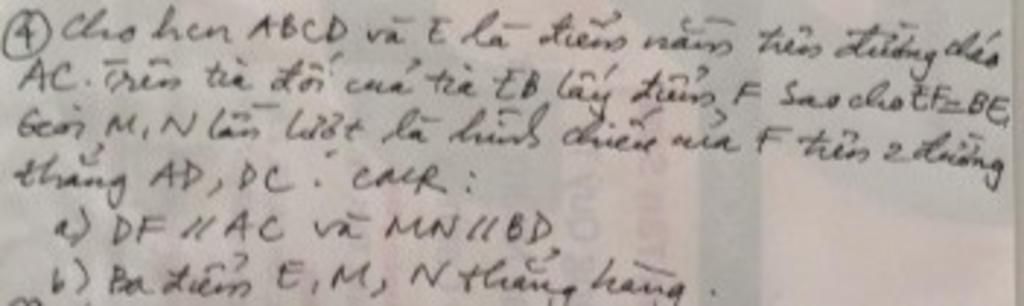 ④ Cho hcn ABCD và E là điểm nằm trên đường chéo
AC. Trên tia đối của tia EB lấy điểm F sao cho EF=BE.
Gọi M, N lần lượt là hình chiếu của F trên 2 đường
thẳng AD, DC. CMR:
a) DF // AC và MN // BD
b) Ba điểm E, M, N thẳng hàng.